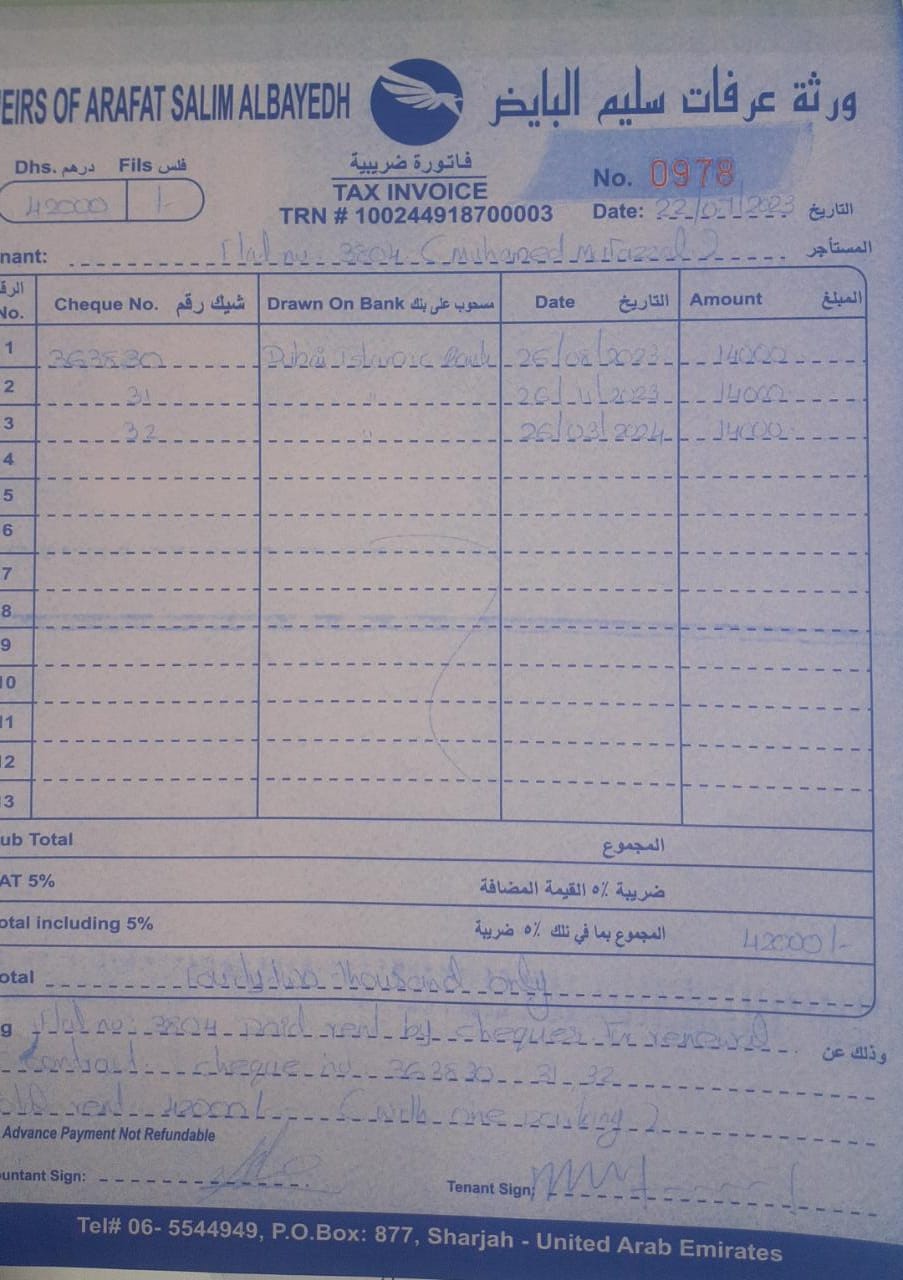 EIRS OF ARAFAT SALIM ALBAYEDH ورثة عرفات سليم البايض
Dhs. درهم Fils فلس
42000 /-
فاتورة ضريبية
TAX INVOICE
TRN # 100244918700003
No. 0978
Date: 22/07/2023 التاريخ
nant: Flat no: 3804 ( Muhaned ) المستأجر
No. Cheque No. شيك رقم Drawn On Bank مسحوب على بنك Date التاريخ Amount المبلغ
1 363830 Dubai Islamic Bank 26/08/2023 14000
2 31 " 26/11/2023 14000
3 32 " 26/03/2024 14000
4
5
6
7
8
9
10
11
12
13
ub Total المجموع
AT 5% ضريبة ٥٪ القيمة المضافة
otal including 5% المجموع بما في تلك ٥٪ ضريبة 42000/-
otal thousand only
g Flat no: 3804 paid rent by cheques renewal وذلك عن
Contract cheque no 363830 31 32
rent 42000/- (with one parking)
Advance Payment Not Refundable
untant Sign:
Tenant Sign
Tel# 06- 5544949, P.O.Box: 877, Sharjah - United Arab Emirates